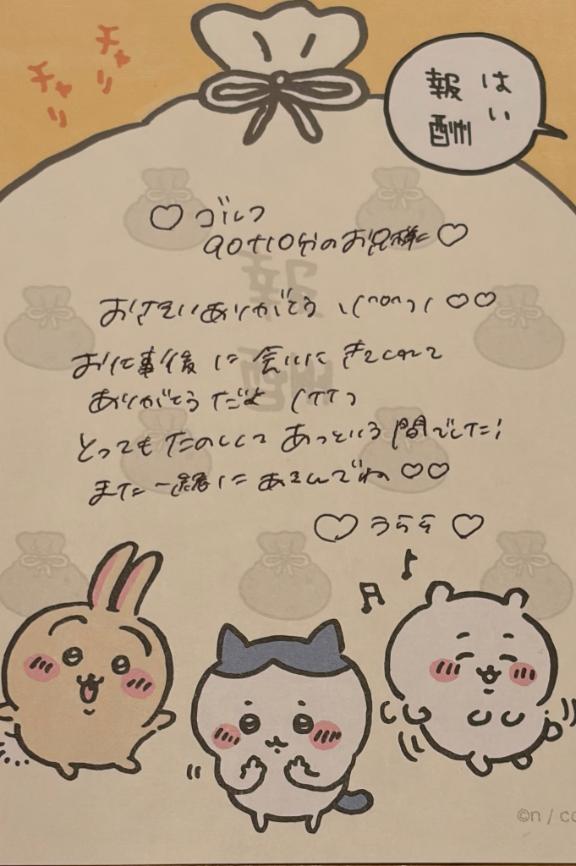 チャリ
チャリ
はい
報酬
♡ ゴルフ
90+10分のお兄様に♡
報酬
おさそいありがとう \(^o^)/ ♡♡
お仕事後に会いにきてくれて
ありがとうだよ (TT)
とってもたのしくて あっという間でした!
また一緒にあそんでね♡♡
♡ うらら ♡
©n / co